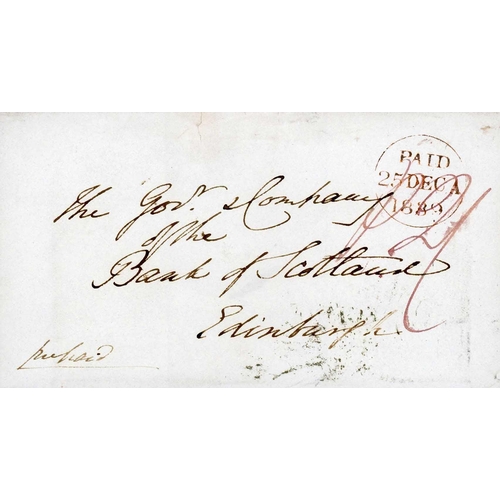 PAID
25 DEC A
1839
The Govr. & Company
of the
Bank of Scotland
Edinburgh
prepaid